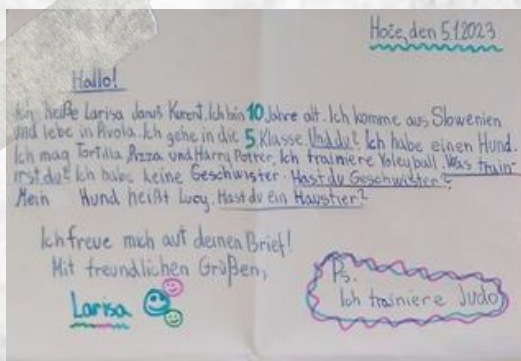 Hoče, den 5.1.2023
Hallo!
Ich heiße Larisa Kurent. Ich bin 10 Jahre alt. Ich komme aus Slowenien
und lebe in. Ich gehe in die 5 Klasse. Und du? Ich habe einen Hund.
Ich mag Tortilla, Pizza und Harry Potter. Ich trainiere Voleyball. Was train-
irst du? Ich habe keine Geschwister. Hast du Geschwister?
Mein Hund heißt Lucy. Hast du ein Haustier?
Ich freue mich auf deinen Brief!
Mit freundlichen Grüßen,
Larisa
Ps.
Ich trainiere Judo